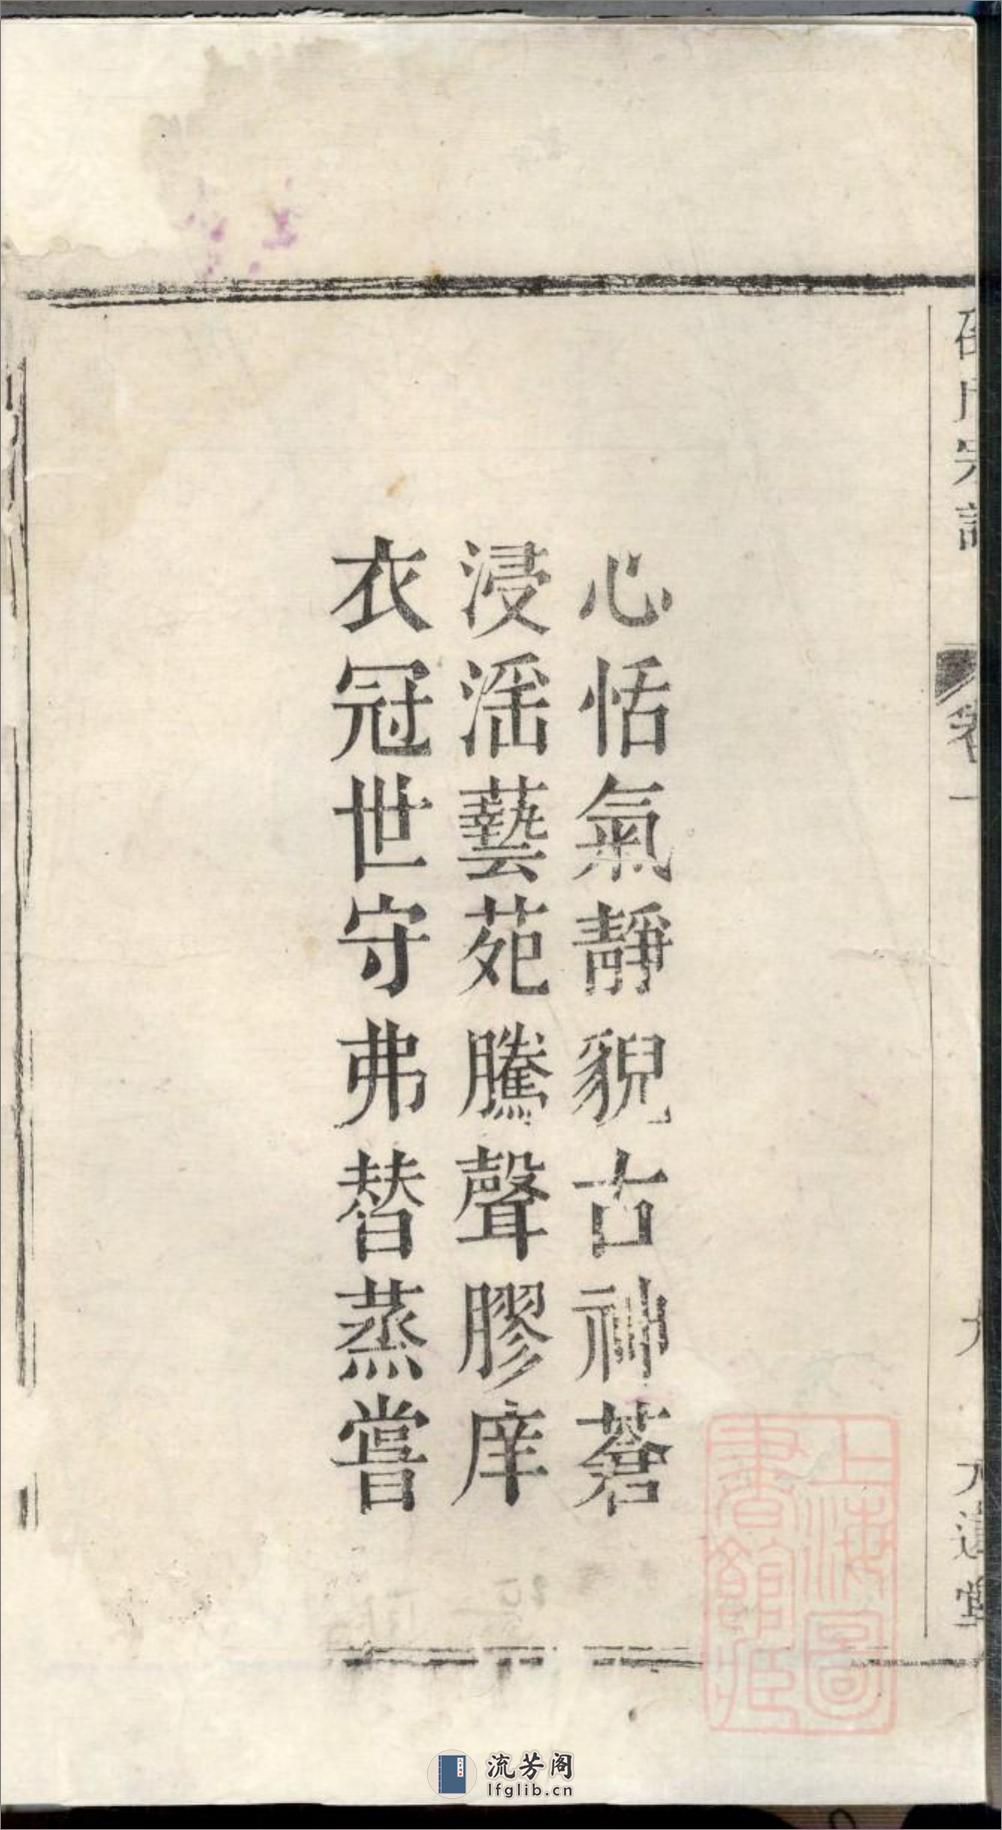 心恬氣靜貌古神蒼
浸滛藝苑騰聲膠庠
衣冠世守弗替蒸嘗
邵氏宗譜
卷一
九
上海圖
書館藏
流芳阁
lfglib.cn